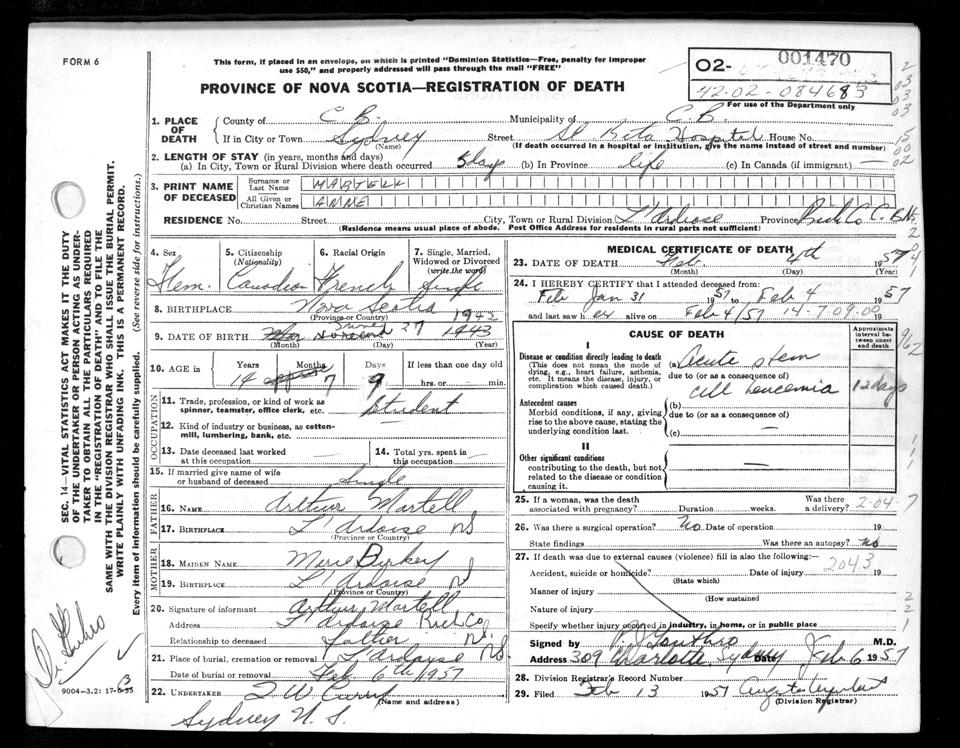 FORM 6
This form, if placed in an envelope, on which is printed "Dominion Statistics—Free, penalty for improper
use $50," and properly addressed will pass through the mail "FREE"
PROVINCE OF NOVA SCOTIA—REGISTRATION OF DEATH
001470
02-
42-02-084683
For use of the Department only
1. PLACE OF DEATH
County of C. B. Municipality of C. B.
If in City or Town Sydney Street St Rita Hospital House No.
(Name) (If death occurred in a hospital or institution, give the name instead of street and number)
2. LENGTH OF STAY (in years, months and days)
(a) In City, Town or Rural Division where death occurred 5 days (b) In Province life (c) In Canada (if immigrant) —
3. PRINT NAME OF DECEASED
Surname or Last Name MARTELL
All Given or Christian Names ANNE
RESIDENCE No. Street City, Town or Rural Division L'Ardoise Province Rich Co C. B. N.S.
(Residence means usual place of abode. Post Office Address for residents in rural parts not sufficient)
4. Sex Fem.
5. Citizenship (Nationality) Canadian
6. Racial Origin French
7. Single, Married, Widowed or Divorced (write the word) Single
8. BIRTHPLACE Nova Scotia
(Province or Country)
1942
9. DATE OF BIRTH June 27 1943
(Month) (Day) (Year)
10. AGE in Years Months Days If less than one day old
14 7 9 hrs. or min.
OCCUPATION
11. Trade, profession, or kind of work as
spinner, teamster, office clerk, etc. Student
12. Kind of industry or business, as cotton-
mill, lumbering, bank, etc.
13. Date deceased last worked
at this occupation —
14. Total yrs. spent in
this occupation —
15. If married give name of wife
or husband of deceased Single
FATHER
16. NAME Arthur Martell
17. BIRTHPLACE L'Ardoise NS
(Province or Country)
MOTHER
18. MAIDEN NAME Marie
19. BIRTHPLACE L'Ardoise NS
(Province or Country)
20. Signature of informant Arthur Martell
Address L'ardoise Rich Co
Relationship to deceased father N.S.
21. Place of burial, cremation or removal L'Ardoise NS
Date of burial or removal Feb 6th 1957
22. UNDERTAKER T W Curry
(Name and address)
Sydney N. S.
MEDICAL CERTIFICATE OF DEATH
23. DATE OF DEATH Feb. 4th 1957
(Month) (Day) (Year)
24. I HEREBY CERTIFY that I attended deceased from:
Jan 31 1957 to Feb 4 1957
and last saw her alive on Feb 4/57 14-7.09.00
CAUSE OF DEATH
Approximate interval between onset and death
I
Disease or condition directly leading to death
(This does not mean the mode of
dying, e.g., heart failure, asthenia,
etc. It means the disease, injury, or
complication which caused death.)
(a) Acute stem
due to (or as a consequence of)
cell leucemia 12 days
Antecedent causes
Morbid conditions, if any, giving
rise to the above cause, stating the
underlying condition last.
(b)
due to (or as a consequence of)
(c) —
II
Other significant conditions
contributing to the death, but not
related to the disease or condition
causing it.
—
25. If a woman, was the death
associated with pregnancy? Duration weeks. Was there a delivery? 2-04-7
26. Was there a surgical operation? No Date of operation 19
State findings Was there an autopsy? no
27. If death was due to external causes (violence) fill in also the following:—
Accident, suicide or homicide? Date of injury 2043 19
(State which)
Manner of injury
(How sustained
Nature of injury
Specify whether injury occurred in industry, in home, or in public place
Signed by M.D.
Address 309 Charlotte, Sydney Date Feb 6 1957
28. Division Registrar's Record Number
29. Filed Feb 13 1957
(Division Registrar)
SEC. 14—VITAL STATISTICS ACT MAKES IT THE DUTY
OF THE UNDERTAKER OR PERSON ACTING AS UNDER-
TAKER TO OBTAIN ALL THE PARTICULARS REQUIRED
IN THE "REGISTRATION OF DEATH" AND TO FILE THE
SAME WITH THE DIVISION REGISTRAR WHO SHALL ISSUE THE BURIAL PERMIT.
WRITE PLAINLY WITH UNFADING INK. THIS IS A PERMANENT RECORD.
Every item of information should be carefully supplied. (See reverse side for instructions.)
9004-3.2: 17-6-55